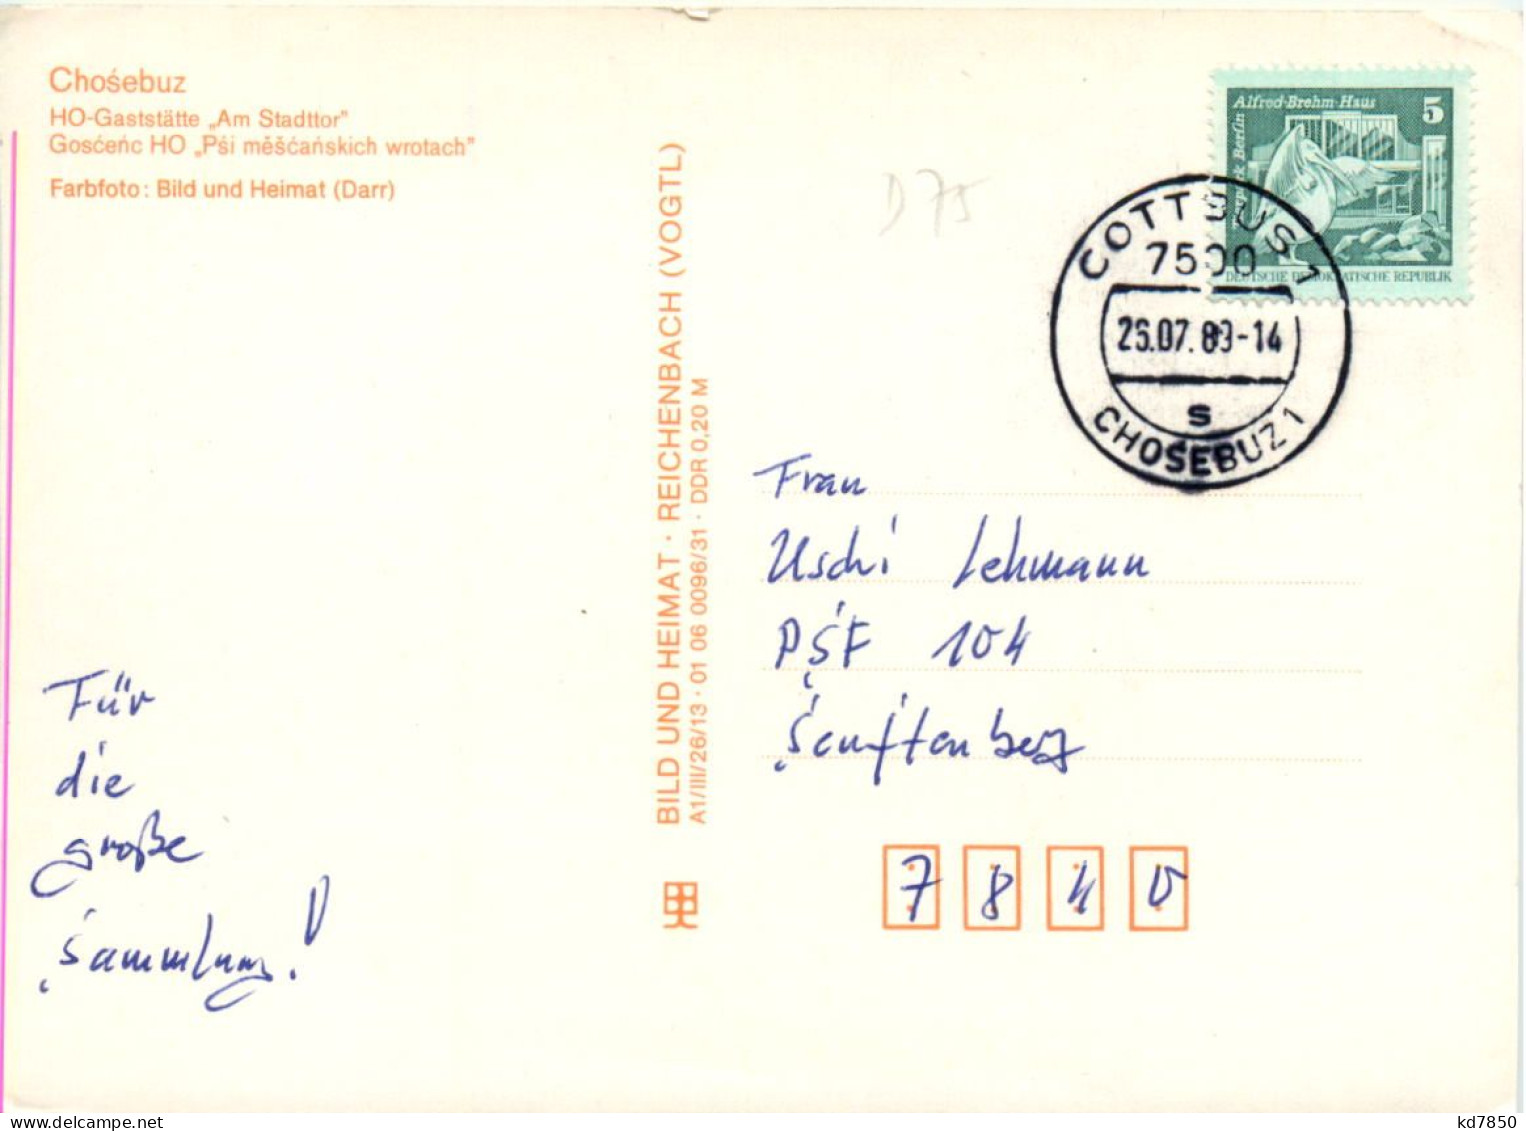 Chośebuz
HO-Gaststätte „Am Stadttor"
Gosćenc HO „Pśi měšćańskich wrotach"
Farbfoto: Bild und Heimat (Darr)
D 75
Alfred-Brehm-Haus 5
Berlin
DEUTSCHE DEMOKRATISCHE REPUBLIK
COTTBUS 1
7500
-14
s
CHOSEBUZ 1
BILD UND HEIMAT · REICHENBACH (VOGTL)
A1/III/26/13 · 01 06 0096/31 · DDR 0,20 M
Frau
Uschi Lehmann
PSF 104
Senftenberg
7840
Für
die
große
Sammlung!
kd7850